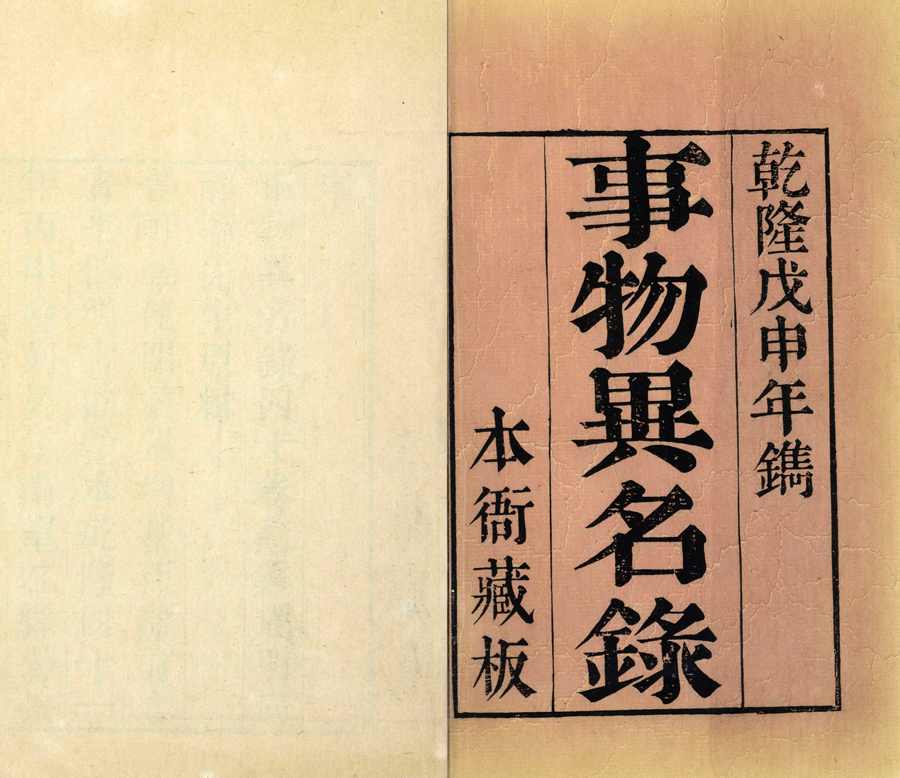 乾隆戊申年鐫
事物異名錄
本衙藏板